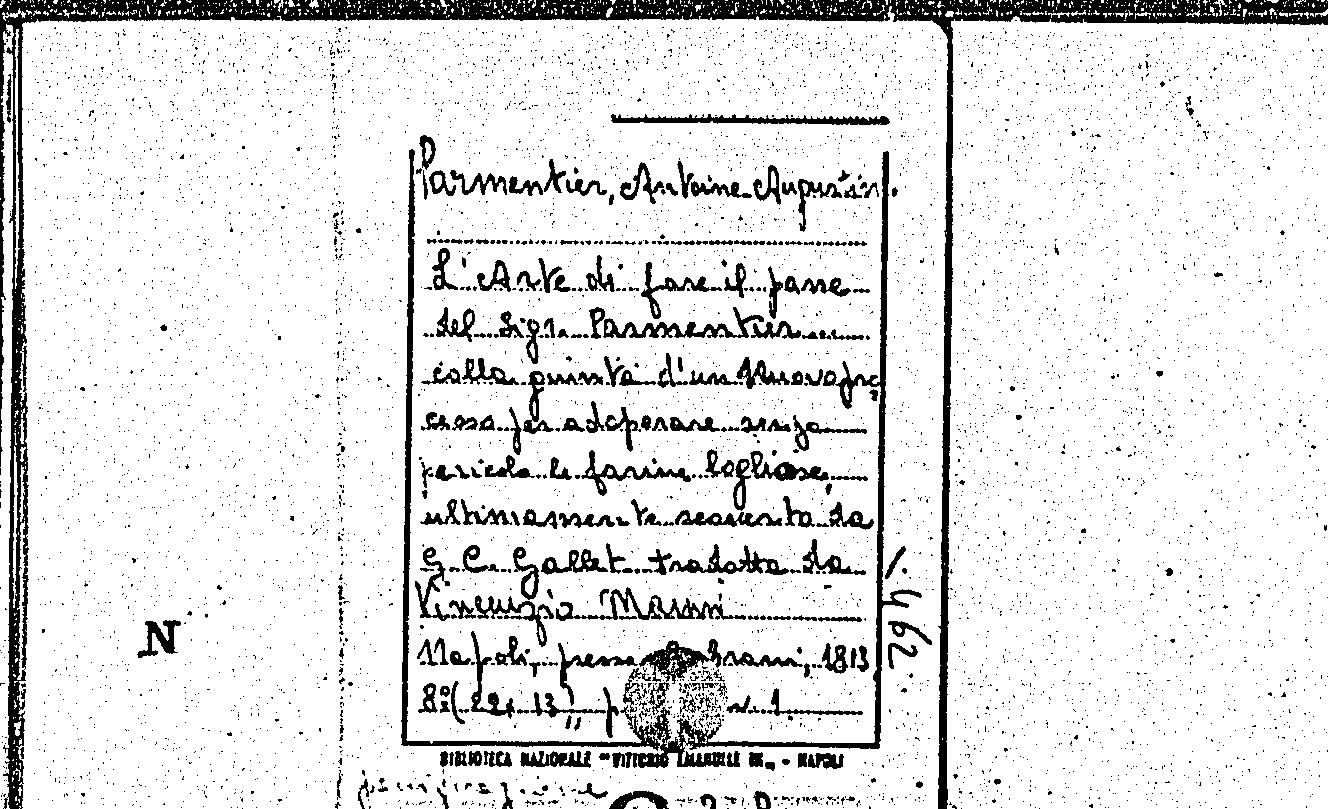 Parmentier, Antoine Augustin.
L'Arte di fare il pane
del Sigr. Parmentier
colla giunta d'un Nuovo pro
cesso per adoperare senza
pericolo le farine logliose,
ultimamente scoverto da
G. C. Gallet tradotta da
Vincenzio
Napoli, presso 1813
8º (22x13), p v. 1.
1.462
N
BIBLIOTECA NAZIONALE "VITTORIO EMANUELE III" - NAPOLI